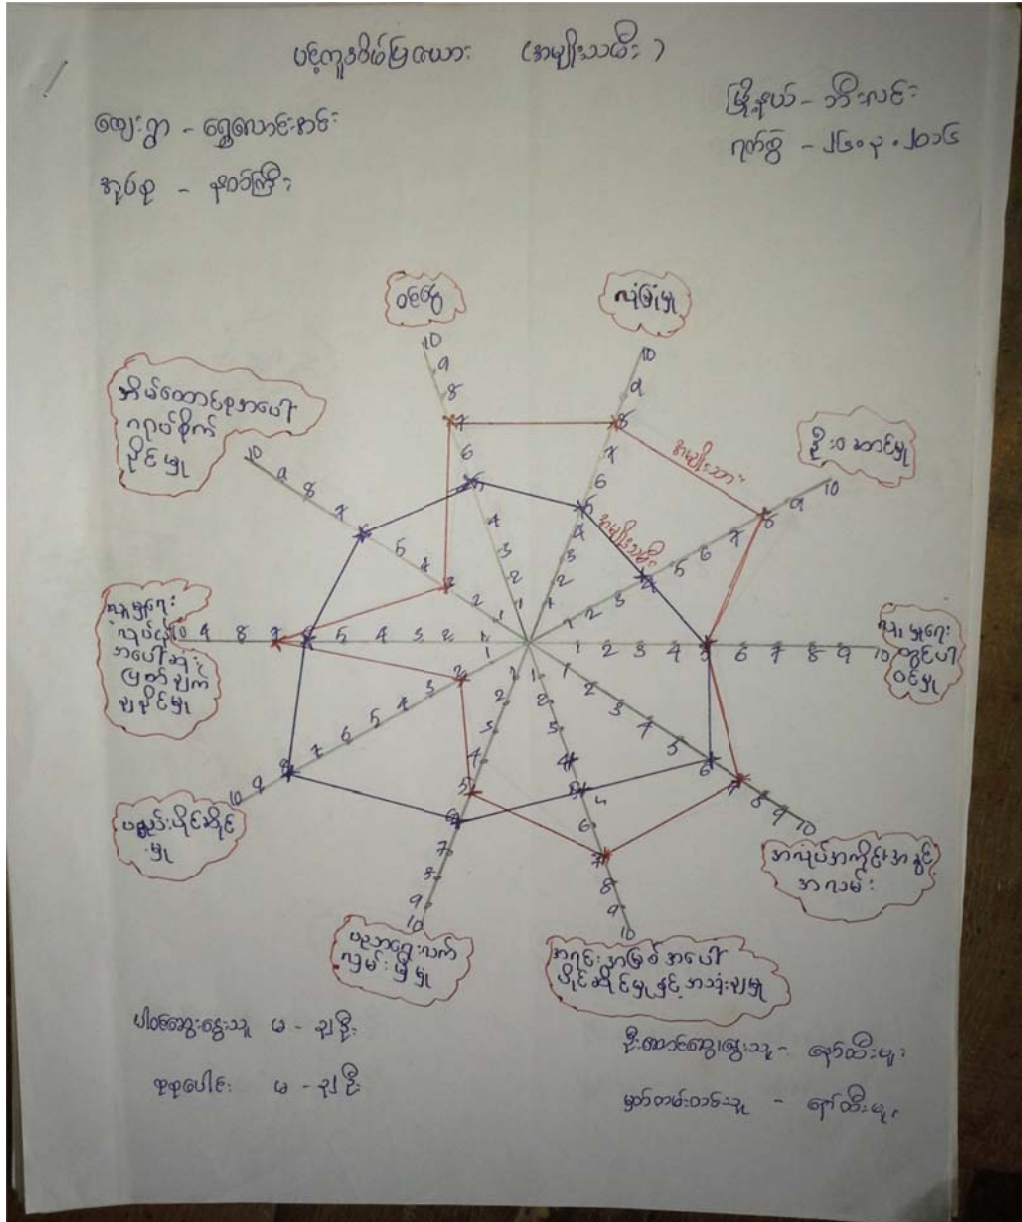 ပင့်ကူအိမ်မြေယား (အမျိုးသမီး)
ကျေးရွာ - ရွှေလောင်းစင်း
အုပ်စု -
မြို့နယ် - ဘီးလင်း
ရက်စွဲ - ၂၆.၃.၂၀၁၆
ဝင်ငွေ
လုံခြုံမှု
ဦးဆောင်မှု
လူမှုရေး
တွင်ပါ
ဝင်မှု
အလုပ်အကိုင်အခွင့်
အလမ်း
အရင်းအမြစ်အပေါ်
ပိုင်ဆိုင်မှုနှင့်အသုံးချမှု
ပညာရေးလက်
လှမ်းမှီမှု
ပစ္စည်းပိုင်ဆိုင်
မှု
လူမှုရေး
လုပ်ငန်း
အပေါ်ဆုံး
ဖြတ်ချက်
ချနိုင်မှု
အိမ်ထောင်စုအပေါ်
ဂရုစိုက်
နိုင်မှု
အမျိုးသား
အမျိုးသမီး
1 2 3 4 5 6 7 8 9 10
ပါဝင်ဆွေးနွေးသူ မ - ၃၂ ဦး
စုစုပေါင်း မ - ၃၂ ဦး
ဦးဆောင်ဆွေးနွေးသူ - နော်ထီးမူး
မှတ်တမ်းတင်သူ - နော်ထီးမူး